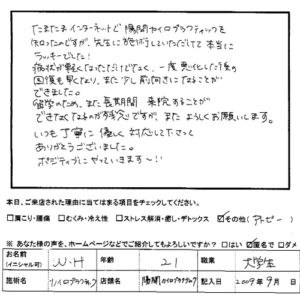 たまたまインターネットで陽開カイロプラクティックを
知ったのですが、先生に施術していただいて本当に
ラッキーでした!
症状が軽くなっただけでなく、一度悪化した後の
回復も早くなり、また少し前向きになることが
できました。
留学のため、また長期間来院することが
できなくなるのが残念ですが、またよろしくお願いします。
いつも丁寧に優しく対応して下さって
ありがとうございました。
ポジティブにやっていきますー!
本日、ご来店された理由に当てはまる項目をチェックしてください。
□肩こり・腰痛 □むくみ・冷え性 □ストレス解消・癒し・デトックス ☑その他(アトピー)
※あなた様の声を、ホームページなどでご紹介してもよろしいですか? □はい ☑匿名で □ダメ
お名前(イニシャル可) N・H 年齢 21 職業 大学生
施術名 カイロプラクティック 店舗名 陽開カイロプラクティック 記入日 2009年9月 日